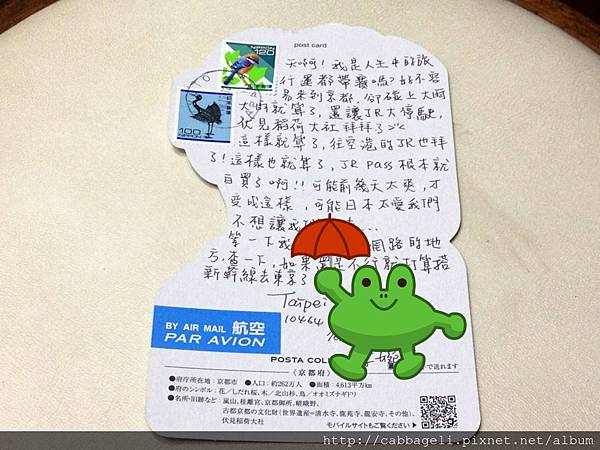 post card
NIPPON
120
100
NIPPON
天啊！我是人生中的旅
行運都帶賽嗎？好不容
易來到京都，卻碰上大雨
大雨就算了，還讓JR大停駛，
伏見稻荷大社拜拜了
這樣就算了，往空港的JR也拜
了！這樣也就算了，JR Pass根本就
白買了啊！！可能前幾天太爽，才
變成這樣，可能日本太愛我們
不想讓我
等一下我 網路的地
方，查一下，如果 是不行就打算搭
新幹線去東京了
Taipei
10464
BY AIR MAIL 航空
PAR AVION
POSTA COL
で送れます
〈京都府〉
●府庁所在地：京都市 ●人口：約262万人 ●面積：4,613平方km
●府のシンボル：花／しだれ桜、木／北山杉、鳥／オオミズナギドリ
●名所・旧跡など：嵐山、桂離宮、京都御所、嵯峨野、
古都京都の文化財（世界遺産＝清水寺、鹿苑寺、龍安寺、その他）、
伏見稲荷大社
モバイルサイトもご覧ください▶
http://cabbageli.pixnet.net/album